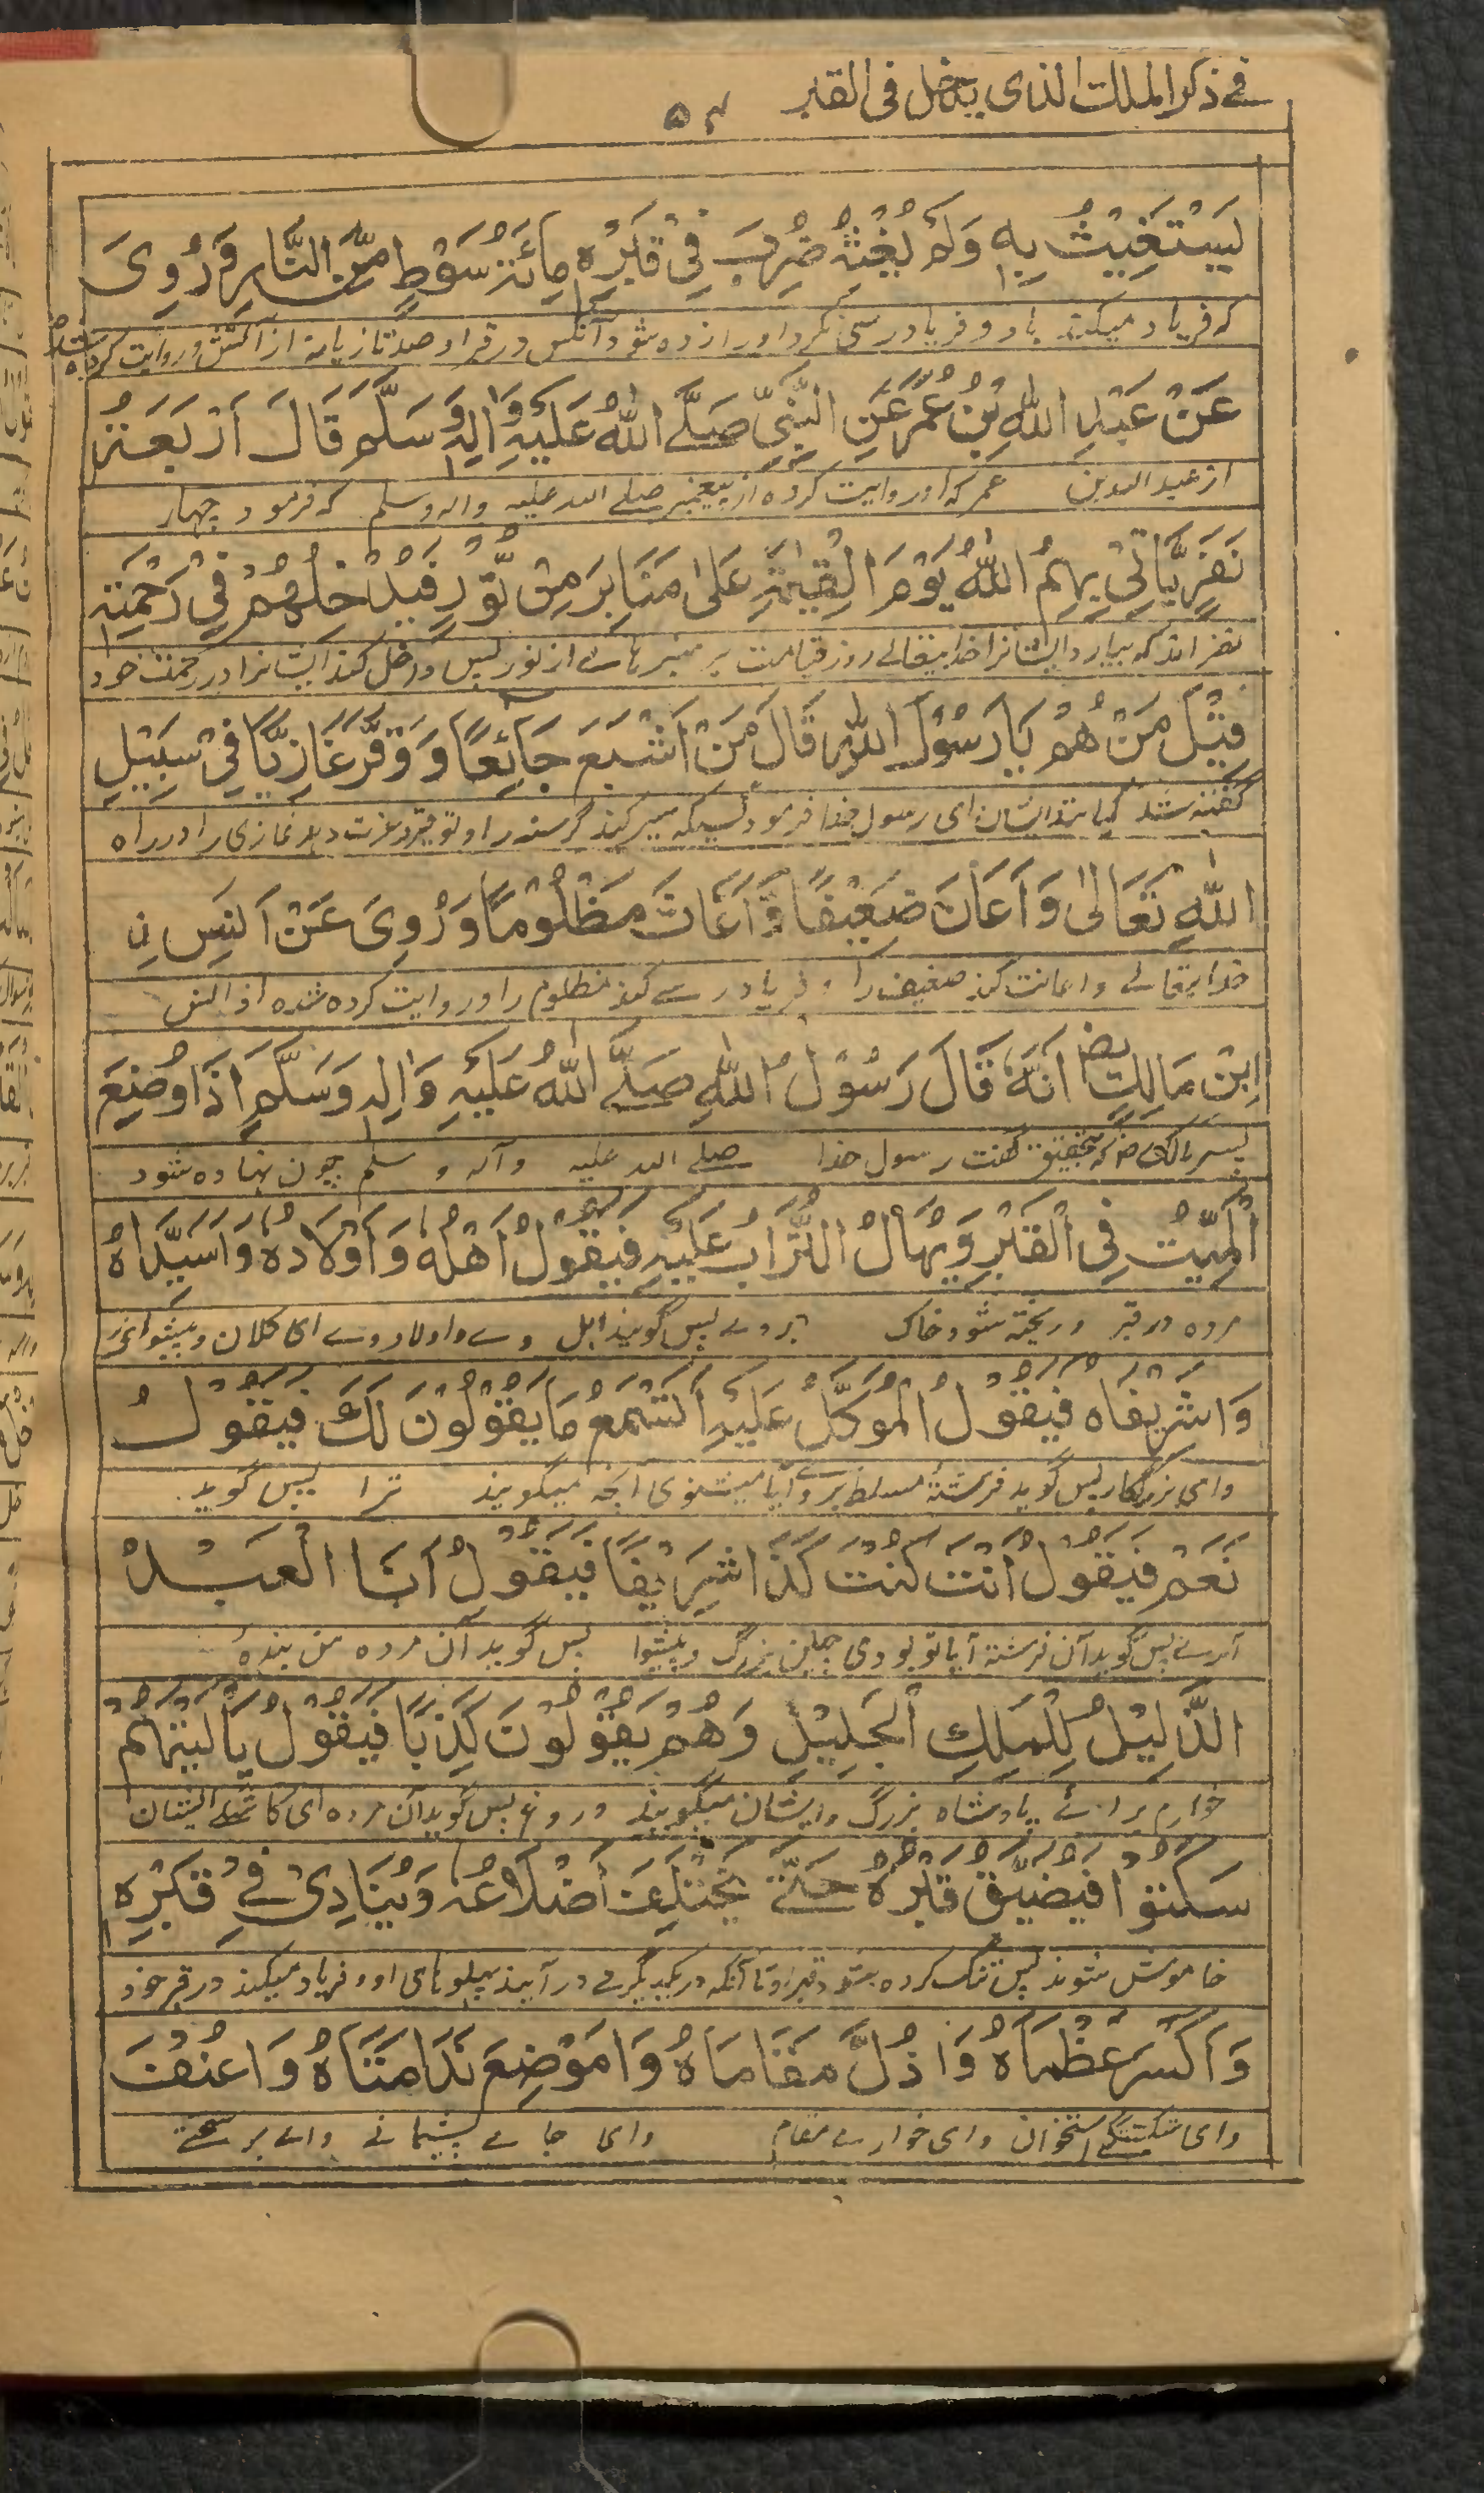 في ذكر الملك الذي يدخل في القبر ۵۲
يَسْتَغِيْثُ بِهٖ وَلَمْ يُغِثْهُ ضُرِبَ فِيْ قَبْرِهٖ مِائَةَ سَوْطٍ مِّنَ النَّارِ وَرُوِىَ
که فریاد میکند باو و فریادرسی نکرد او را زده شود آنکس در قبر او صد تازیانه از آتش و روایت کرده شده
عَنْ عَبْدِ اللهِ بْنِ عُمَرَ عَنِ النَّبِيِّ صَلَّے اللهُ عَلَيْهِ وَاٰلِهٖ وَسَلَّمَ قَالَ اَرْبَعَةُ
از عبد الله بن عمر که او روایت کرده از پیغمبر صلے الله علیه و اله وسلم که فرمود چهار
نَفَرٍ يَّاْتِيْ بِهِمُ اللهُ يَوْمَ الْقِيٰمَةِ عَلٰى مَنَابِرَ مِنْ نُّوْرٍ فَيُدْخِلُهُمْ فِيْ رَحْمَتِهٖ
نفر اند که بیارد ایشانرا خدایتعالے روز قیامت بر منبر هاے از نور پس داخل کند ایشانرا در رحمت خود
قِيْلَ مَنْ هُمْ يَا رَسُوْلَ اللهِ قَالَ مَنْ اَشْبَعَ جَائِعًا وَ وَقَّرَ غَازِيًا فِيْ سَبِيْلِ
گفته شد کیانند ایشان ای رسول خدا فرمود کسیکه سیر کند گرسنه را و توقیر و عزت دهد غازی را در راه
اللهِ تَعَالٰى وَاَعَانَ ضَعِيْفًا وَّاَغَاثَ مَظْلُوْمًا وَرُوِىَ عَنْ اَنَسِ نِ
خدایتعالے و اعانت کند ضعیف را و فریادرسے کند مظلوم را و روایت کرده شده از انس
ابْنِ مَالِكٍ رض اَنَّهٗ قَالَ رَسُوْلُ اللهِ صَلَّے اللهُ عَلَيْهِ وَاٰلِهٖ وَسَلَّمَ اِذَا وُضِعَ
پسر مالک رض که بتحقیق گفت رسول خدا صلے الله علیه و آله و سلم چون نهاده شود
الْمَيِّتُ فِى الْقَبْرِ وَيُهَالُ التُّرَابُ عَلَيْهِ فَيَقُوْلُ اَهْلُهٗ وَاَوْلَادُهٗ وَاسَيِّدَاهُ
مرده در قبر و ریخته شود خاک بروے پس گویند اهل وے و اولاد وے ای کلان و پیشوائے
وَاشَرِيْفَاهُ فَيَقُوْلُ الْمُوَكَّلُ عَلَيْهِ اَتَسْمَعُ مَا يَقُوْلُوْنَ لَكَ فَيَقُوْلُ
وای بزرگا پس گوید فرشتۀ مسلط بروے آیا میشنوی انچه میگویند ترا پس گوید
نَعَمْ فَيَقُوْلُ اَنْتَ كُنْتَ كَذَا شَرِيْفًا فَيَقُوْلُ اَنَا الْعَبْدُ
آرے پس گوید آن فرشته آیا تو بودی چنین بزرگ و پیشوا پس گوید آن مرده من بندۀ
الذَّلِيْلُ لِلْمَلِكِ الْجَلِيْلِ وَهُمْ يَقُوْلُوْنَ كَذِبًا فَيَقُوْلُ يَا لَيْتَهُمْ
خوارم براے پادشاه بزرگ و ایشان میگویند دروغ پس گوید آن مرده ای کاشکے ایشان
سَكَتُوْا فَيُضَيَّقُ قَبْرُهٗ حَتّٰے يَخْتَلِفَ اَضْلَاعُهٗ وَيُنَادِىْ فِے قَبْرِهٖ
خاموش شوند پس تنگ کرده بشود قبر او تا آنکه در یکدیگرے در آیند پهلو های او و فریاد میکند در قبر خود
وَاكَسْرَ عَظْمَاهُ وَاذُلَّ مَقَامَاهُ وَامَوْضِعَ نَدَامَتَاهُ وَاعُنْفَ
وای شکستگے استخوان وای خوارے مقام وای جاے پشیمانے واے بر سختے